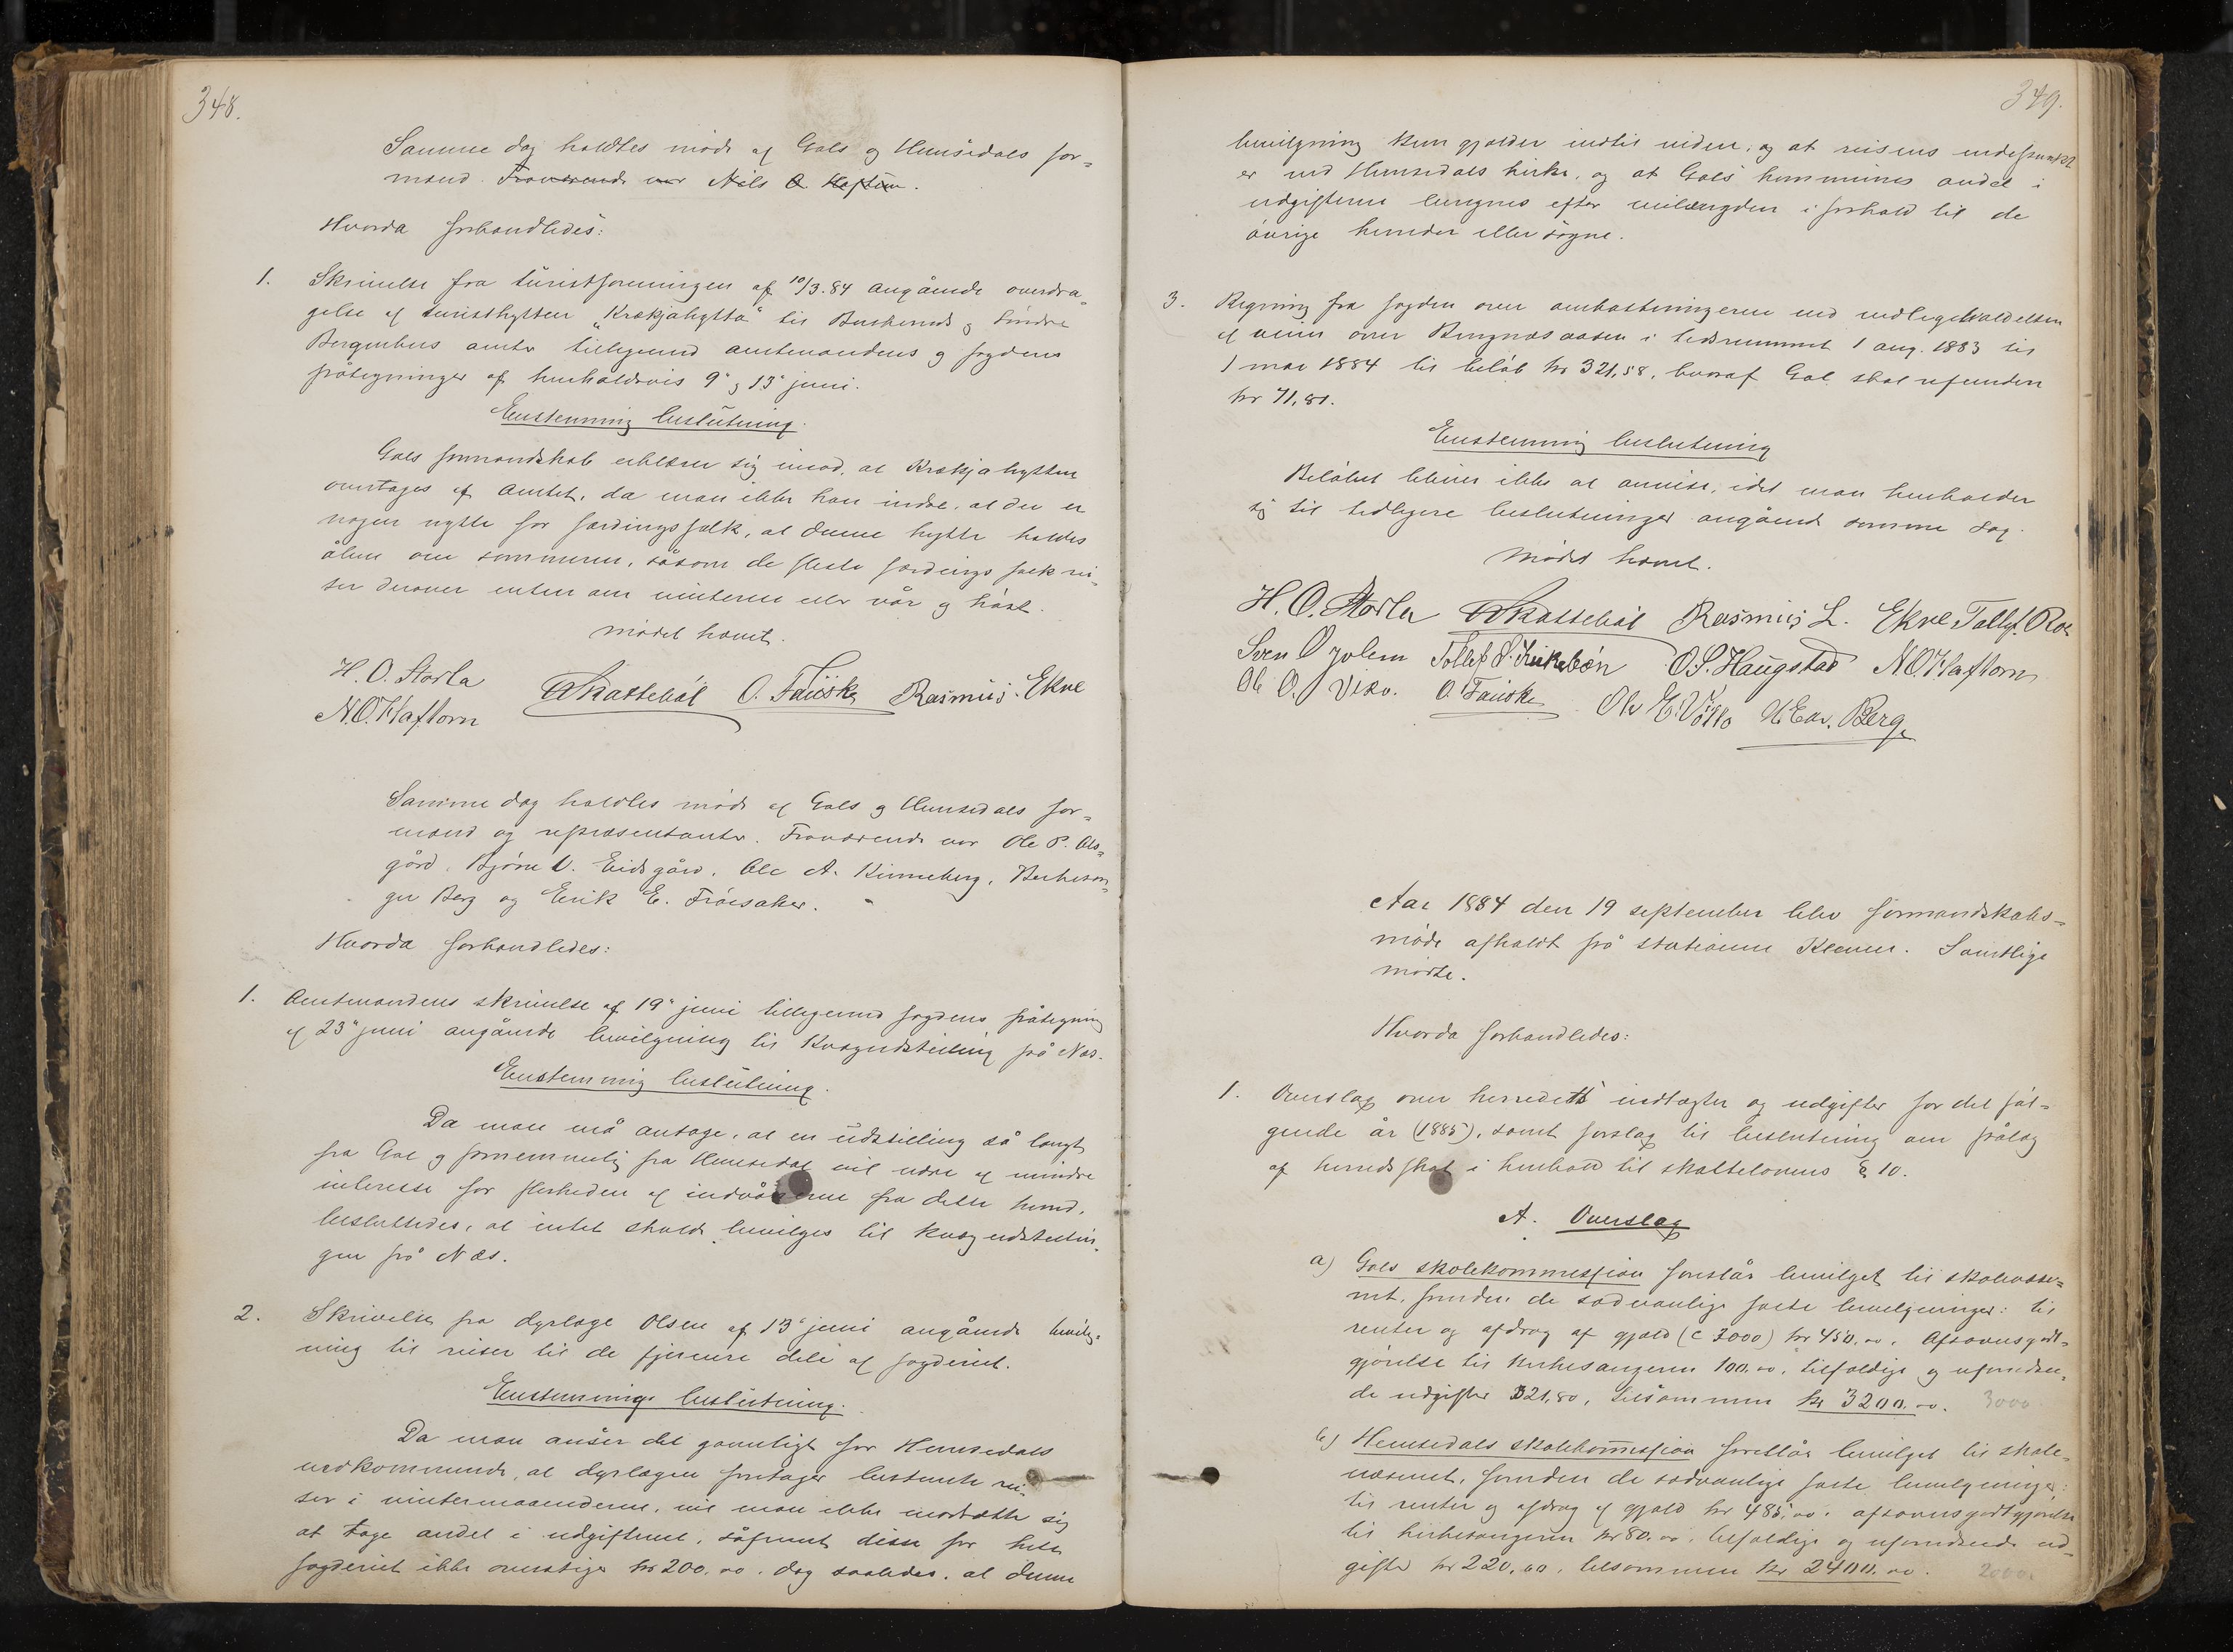 348.
Samme dag holdtes møde af Gols og Hemsedals for-
mænd. Fraværende var Nils O. Haftorn.
Hvorda forhandledes:
1. Skrivelse fra turistforeningen af 10/3.84 angående overdra-
gelse af turisthytten "Krækjahytta" til Buskeruds og Søndre
Bergenhus amter tilligemed amtmandens og fogdens
påtegninger af henholdsvis 9de og 13de juni.
Enstemmig beslutning.
Gols formandskab erklærer sig imod, at Krækjahytten
overtages af amtet, da man ikke kan indse, at der er
nogen nytte for færdingsfolk, at denne hytte holdes
åben om sommeren, såsom de fleste færdings folk rei-
ser derover enten om vinteren eller vår og høst.
Mødet hævet.
H. O. Storla Skattebøl O. Fauske Rasmus Ekre
N. O. Haftorn
Samme dag holdtes møde af Gols og Hemsedals for-
mænd og repræsentanter. Fraværende var Ole P. Als-
gård, Bjørn O. Eidsgård, Ole A. Kinneberg, Kirkesan-
ger Berg og Eirik E. Frøisaker.
Hvorda forhandledes:
1. Amtmandens skrivelse af 19de juni tilligemed fogdens påtegning
af 23de juni angående bevilgning til Kvægudstilling på Næs.
Enstemmig beslutning.
Da man må antage, at en udstilling så langt
fra Gol og fornemmelig fra Hemsedal vil være af mindre
interesse for flerheden af indvånerne fra dette herred,
besluttedes, at intet skulde bevilges til kvægudstillin-
gen på Næs.
2. Skrivelse fra dyrlæge Olsen af 13de juni angående bevilg-
ning til reiser til de fjernere dele af fogderiet.
Enstemmig beslutning.
Da man anser det gavnligt for Hemsedals
vedkommende, at dyrlægen foretager bestemte rei-
ser i vintermaanederne, vil man ikke modsætte sig
at tage andel i udgifterne, såfremt disse for hele
fogderiet ikke overstiger kr 200.00. dog saaledes, at denne
349.
bevilgning kun gjælder indtil videre, og at reisens endepunkt
er ved Hemsedals kirke, og at Gols kommunes andel i
udgifterne beregnes efter veilængden i forhold til de
øvrige herreder eller sogne.
3. Regning fra fogden over omkostningerne ved vedligeholdelsen
af veien over Bergnæsaasen i tidsrummet 1 aug. 1883 til
1 mai 1884 til beløb kr 321,58, hvoraf Gol skal refundere
kr 71,81.
Enstemmig beslutning
Beløbet bliver ikke at anvise, idet man henholder
sig til tidligere beslutninger angående samme sag.
Mødet hævet.
H. O. Storla Skattebøl Rasmus L. Ekre Tollef Roe
Sven O Golem Tollef S. Kirkebøn O. S. Haugstad N. O. Haftorn
Ole O. Viko. O. Fauske Ole E. Votto H Edv. Berg.
Aar 1884 den 19 september blev formandskabs-
møde afholdt på stationen Kleven. Samtlige
mødte.
Hvorda forhandledes:
1. Overslag over herredets indtægter og udgifter for det føl-
gende år (1885), samt forslag til beslutning om pålæg
af herredsskat i henhold til skattelovens § 10.
A. Overslag
a) Gols skolekommission foreslår bevilget til skolevæse-
net, foruden de sædvanlige faste bevilgninger: til
renter og afdrag af gjæld (c 3000) kr 450.00. Afsavnsgodt-
gjørelse til kirkesangeren 100.00, tilfældige og uforudsee-
de udgifter 321,80, tilsammen kr 3200.00. 3000
b) Hemsedals skolekommission foreslår bevilget til skole-
væsenet, foruden de sædvanlige faste bevilgninger:
til renter og afdrag af gjæld kr 485.00. afsavnsgodtgjørelse
til kirkesangeren kr 80.00, tilfældige og uforudseede ud-
gifter kr 220.60. tilsammen kr 2400.00. 2000.